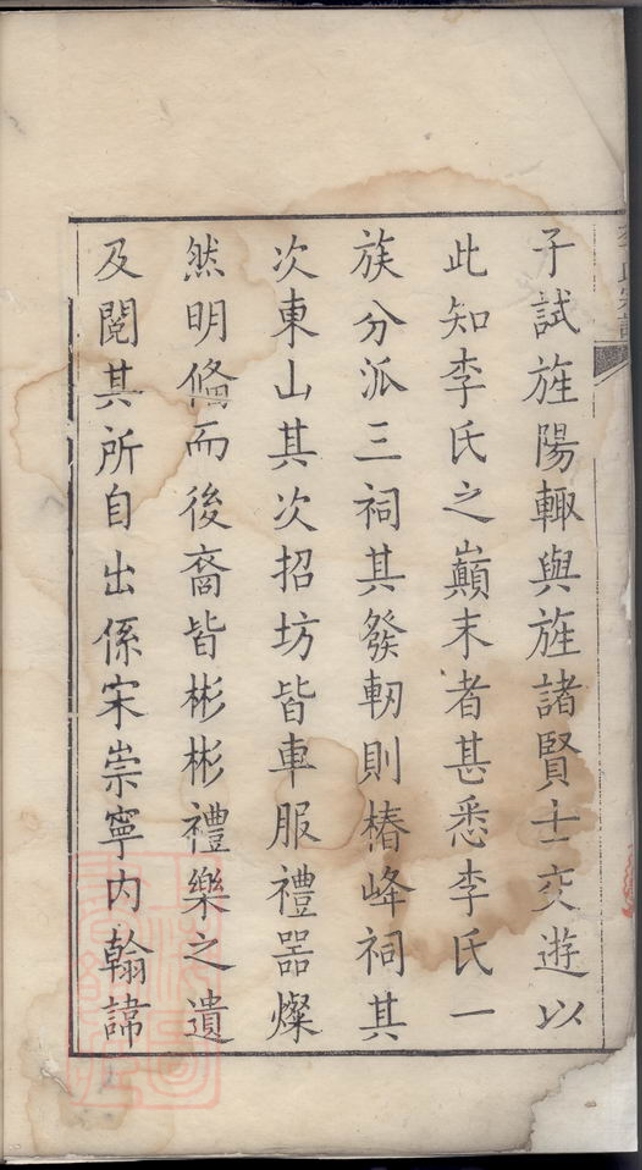 子試旌陽輙與旌諸賢士交遊以
此知李氏之巔末者甚悉李氏一
族分派三祠其發軔則樁峰祠其
次東山其次招坊皆車服禮器燦
然明俻而後裔皆彬彬禮樂之遺
及閱其所自出係宋崇寧内翰諱